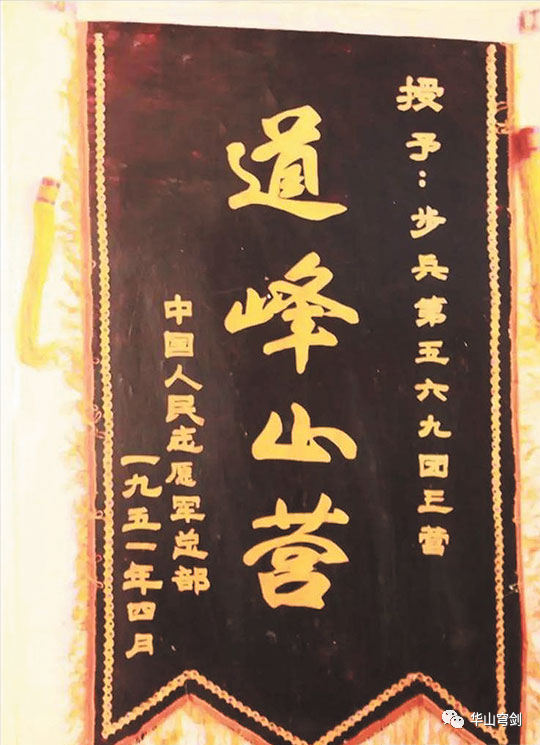 授予：步兵第五六九团三营
道峰山营
中国人民志愿军总部
一九五一年四月
华山穹剑